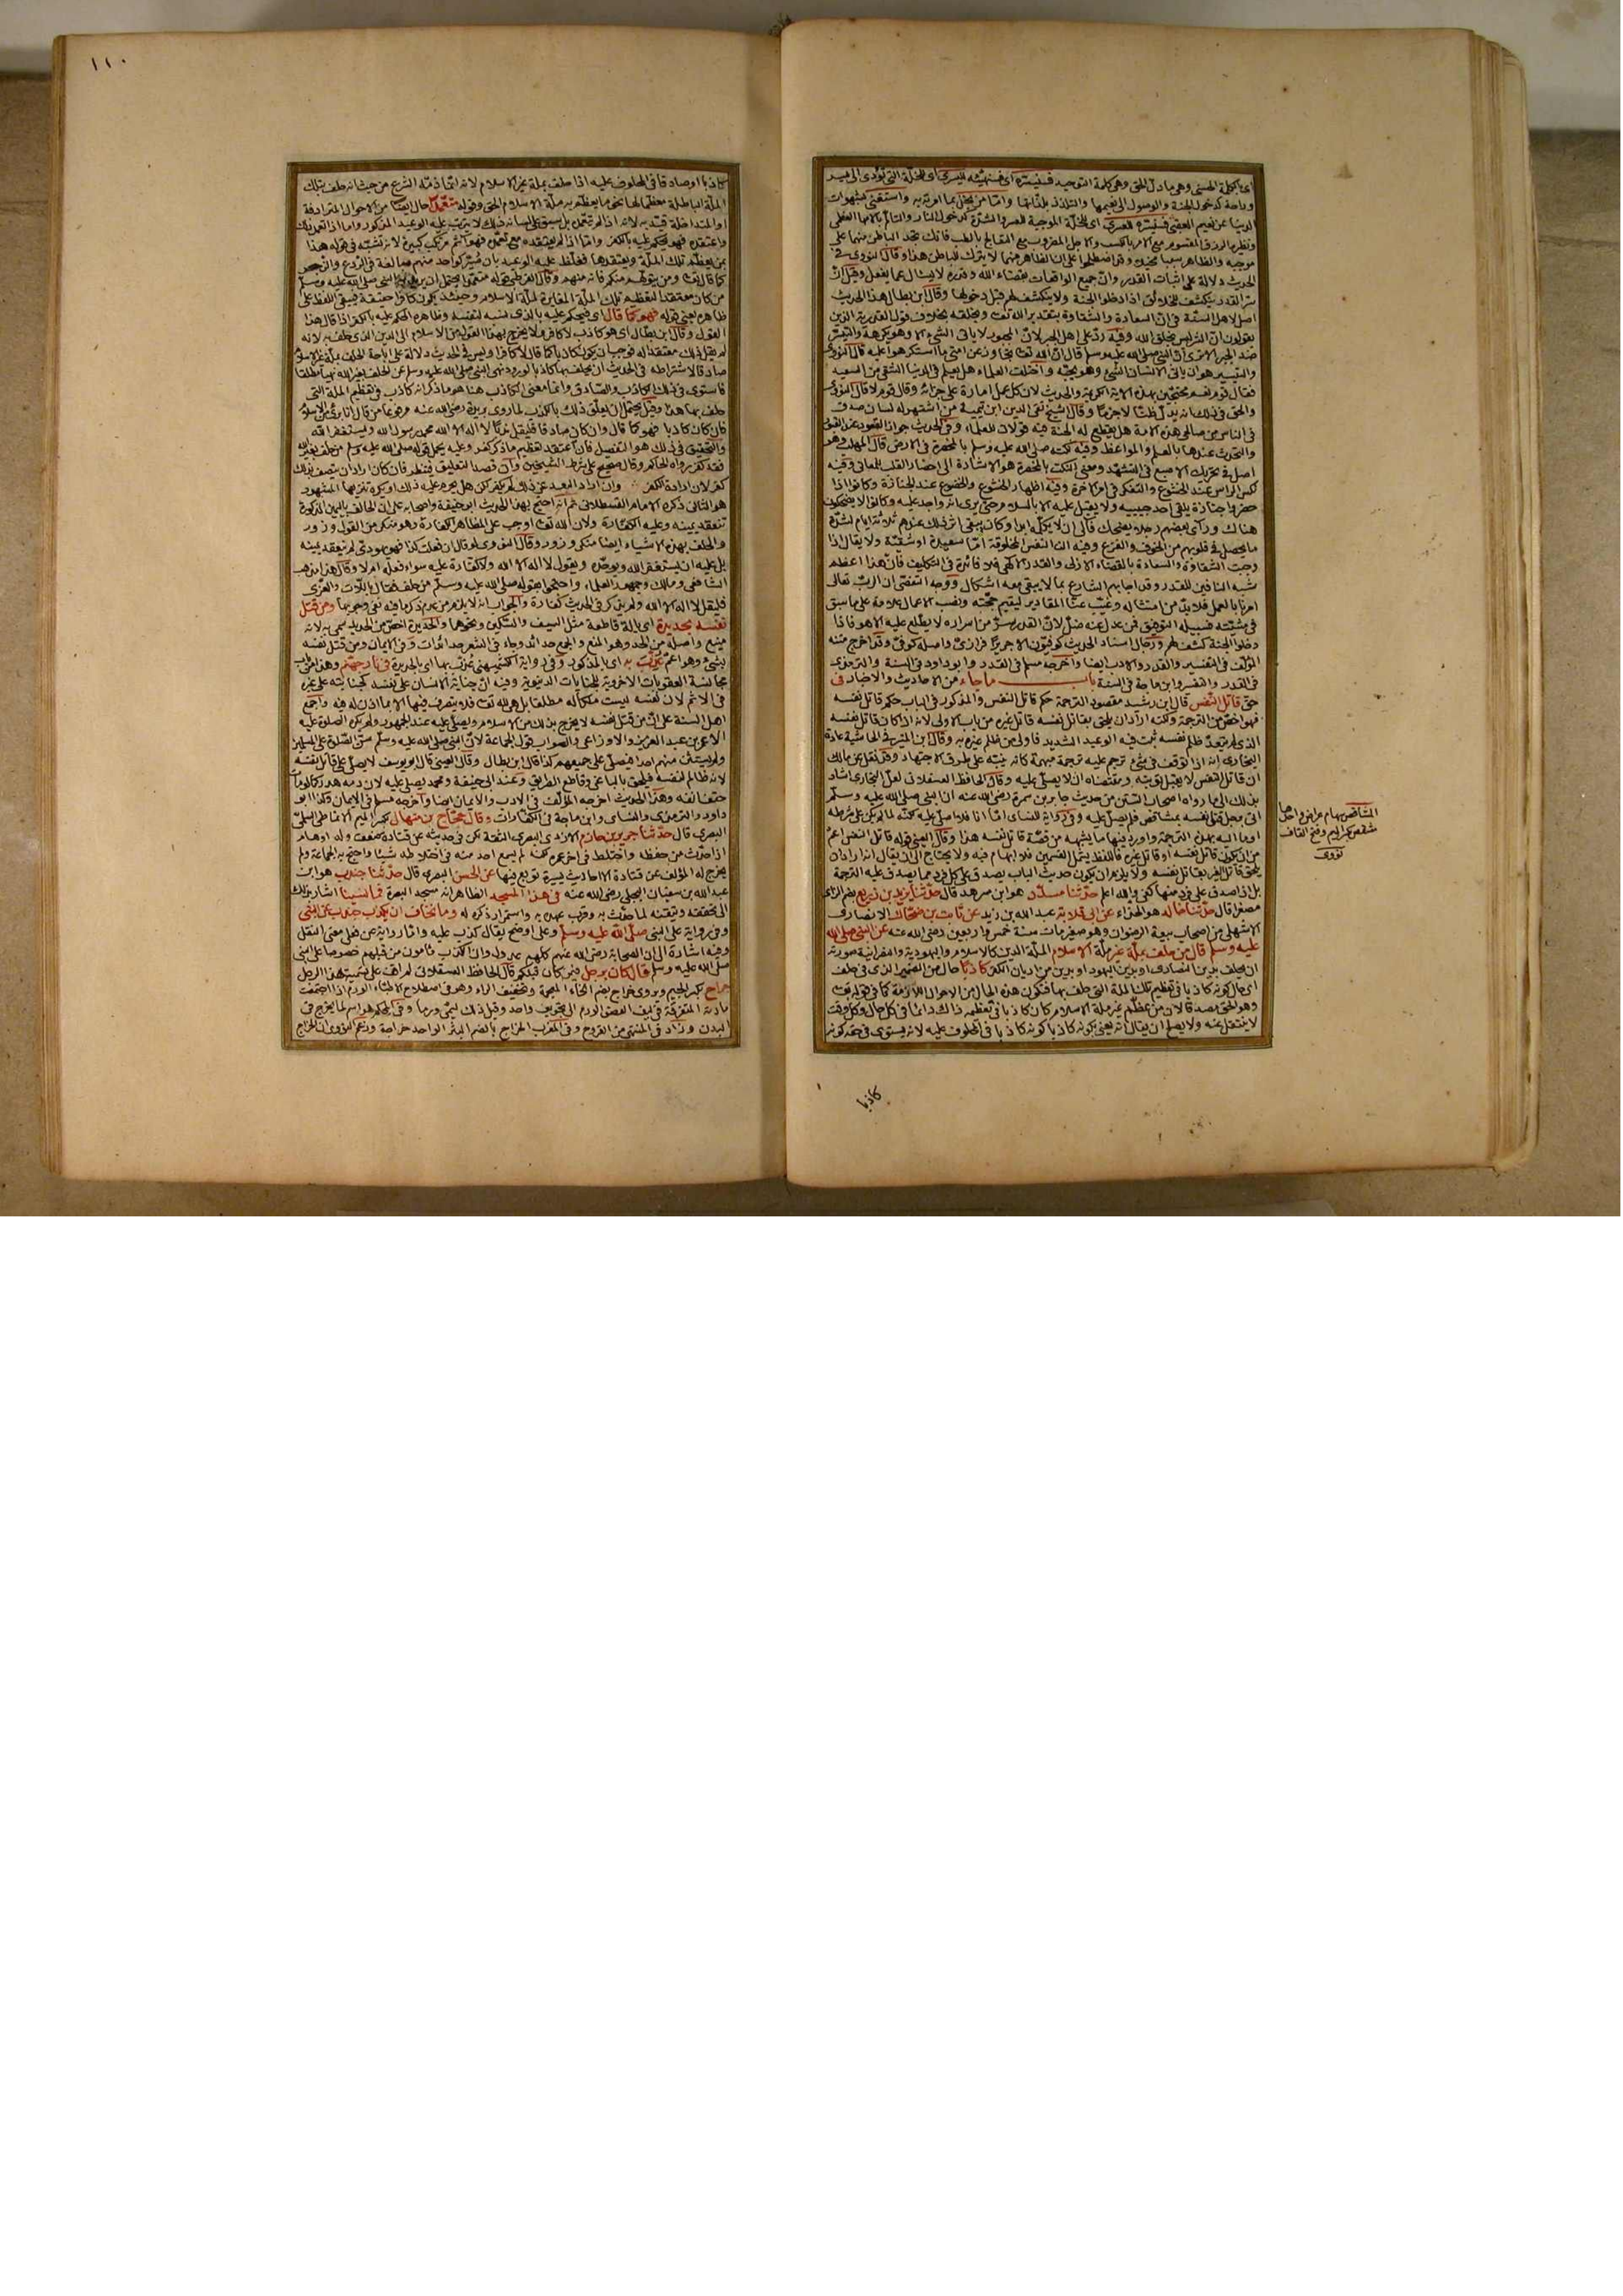 اى بالكلمة الحسنى وهى ما دل على الحق وهى كلمة التوحيد فسنيسره اى فسنهيئه لليسرى اى للخلة التى تؤدى الى يسر
وراحة كدخول الجنة والوصول الى نعيمها والتلذذ بلذاتها واما من بخل بما امر به واستغنى بشهوات
الدنيا عن نعيم العقبى فسنيسره للعسرى اى للخلة الموجبة للعسر والشدة كدخول النار والتألم بآلامها العظمى
ونظيره الرزق المقسوم مع الامر بالكسب والاجل المضروب مع المعالجة بالطب فانك تجد الباطن منهما على
موجبه والظاهر سببا مخيلا وقد اصطلحوا على ان الظاهر منهما لا يترك للباطن هذا وقال النووى فى
الحديث دلالة على اثبات القدر وان جميع الواقعات بقضاء الله وقدره لا يسئال عما يفعل وقيل ان
سر القدر ينكشف للخلائق اذا دخلوا الجنة ولا ينكشف لهم قبل دخولها وقال ابن بطال هذا الحديث
اصل لاهل السنة فى ان السعادة والشقاوة بتقدير الله تعالى وبخلقه بخلاف قول القدرية الذين
يقولون ان الشر ليس بخلق الله وفيه رد على اهل الجبر لان المجبور لا ياتى الشئ الا وهو يكرهه والتيسر
ضد الجبر الا ترى ان النبى صلى الله عليه وسلم قال ان الله تعالى تجاوز عن امتى ما استكرهوا عليه قال النووى
والتيسير هو ان ياتى الانسان الشئ وهو يحبه واختلف العلماء هل يعلم فى الدنيا الشقى من السعيد
فقال قوم نعم محتجين بهذه الاية الكريمة والحديث لان كل عمل امارة على جزائه وقال قوم لا قال النووى
والحق فى ذلك انه يدل ظنا لا جزما وقال الشيخ تقى الدين ابن تيمية من اشتهر له لسان صدق
فى الناس من صالحى هذه الامة هل يقطع له الجنة فيه قولان للعلماء وفى الحديث جواز القعود عند القبور
والتحدث عندها بالعلم والمواعظ وفيه نكته صلى الله عليه وسلم بالمخصرة فى الارض قال المهلب وهو
اصل فى تحريك الاصبع فى التشهد ومعنى النكت بالمخصرة هو الاشارة الى احضار القلب للمعانى وفيه
نكس الراس عند الخشوع والتفكر فى امر الاخرة وفيه اظهار الخشوع والخضوع عند الجنازة وكانوا اذا
حضروا جنازة يلقى احد حبيبه ولا يقبل عليه الا بالسلام حتى يرى انه واجد عليه وكانوا لا يضحكون
هناك وراى بعضهم رجلا يضحك فآلى ان لا يكلمه ابدا وكان يبقى اثر ذلك عندهم ثلاثة ايام لشدة
ما يحصل فى قلوبهم من الخوف والفزع وفيه ان النفس المخلوقة اما سعيدة او شقية ولا يقال اذا
وجبت الشقاوة والسعادة بالقضاء الازلى والقدر الالهى فلا فائدة فى التكليف فان هذا اعظم
شبه النافين للقدر وقد اجابهم الشارع بما لا يبقى معه اشكال ووجه التقصى ان الرب تعالى
امرنا بالعمل فلا بد من امتثاله وغيب عنا المقادير ليقيم حجته ونصب الاعمال علامة على ما سبق
فى مشيته فسبيله التوقف فمن عدل عنه ضل لان القدر سر من اسراره لا يطلع عليه الا هو فاذا
دخلوا الجنة كشف لهم ورجال اسناد الحديث كوفيون الا جريرا فرازى واصله كوفى وقد اخرج متنه
المؤلف فى التفسير والقدر والادب ايضا واخرجه مسلم فى القدر وابو داود فى السنة والترمذى
فى القدر والتفسير وابن ماجة فى السنة باب ما جاء من الاحاديث والاخبار فى
حق قاتل النفس قال ابن رشيد مقصود الترجمة حكم قاتل النفس والمذكور فى الباب حكم قاتل نفسه
فهو اخص من الترجمة ولكنه اراد ان يلحق بقاتل نفسه قاتل غيره من باب الاولى لانه اذا كان قاتل نفسه
الذى لم يتعد ظلم نفسه ثبت فيه الوعيد الشديد فاولى من ظلم غيره به وقال ابن المنير فى الحاشية عادة
البخارى انه اذا توقف فى شئ ترجم عليه ترجمة مبهمة كانه ينبه على طريق الاجتهاد وقد نقل عن مالك
ان قاتل النفس لا يقبل توبته ومقتضاه ان لا يصلى عليه وقال الحافظ العسقلانى لعل البخارى اشار
بذلك الى ما رواه اصحاب السنن من حديث جابر بن سمرة رضى الله عنه ان النبى صلى الله عليه وسلم
اتى برجل قتل نفسه بمشاقص فلم يصل عليه وفى رواية للنساى اما انا فلا اصلى عليه لكنه لما لم يكن على شرطه
اوما اليه بهذه الترجمة واورد فيها ما يشبهه من قصة قاتل نفسه هذا وقال العينى قوله قاتل النفس اعم
من ان يكون قاتل نفسه او قاتل غيره فاللفظ يشمل القسمين فلا ابهام فيه ولا يحتاج الى ان يقال انه اراد ان
يلحق قاتل الغير بقاتل نفسه ولا يلزم ان يكون حديث الباب يصدق على كل فرد مما يصدق عليه الترجمة
بل اذا صدق على فرد منها كفى والله اعلم حدثنا مسدد هو ابن مسرهد قال حدثنا يزيد بن زريع بضم الزاى
مصغرا قال حدثنا خالد هو الحذاء عن ابى قلابة عبد الله بن زيد عن ثابت بن ضحاك الانصارى
الاشهلى من اصحاب بيعة الرضوان وهو صغير مات سنة خمس واربعين رضى الله عنه عن النبى صلى الله
عليه وسلم قال من حلف بملة غير ملة الاسلام الملة الدين كالاسلام واليهودية والنصرانية صورته
ان يحلف بدين النصارى او بدين اليهود او بدين من اديان الكفر كاذبا حال من الضمير الذى فى حلف
اى حال كونه كاذبا فى تعظيم تلك الملة التى حلف بها فتكون هذه الحال من الاحوال اللازمة كما فى قوله تعالى
وهو الحق مصدقا لان من عظم غير ملة الاسلام كان كاذبا فى تعظيمه ذلك دائما فى كل حال وكل وقت
لا ينتقل عنه ولا يصلح ان يقال انه يعنى بكونه كاذبا كونه كاذبا فى المحلوف عليه لانه يستوى فى حقه كونه
المشاقص سهام عراض واحدها
مشقص بكسر الميم وفتح القاف
نووى
كاذبا
١١٠
كاذبا او صادقا فى المحلوف عليه اذا حلف بملة غير الاسلام لانه انما ذمه الشرع من حيث انه حلف بتلك
الملة الباطلة معظما لها نحو ما يعظم به ملة الاسلام الحق وقوله متعمدا حال ايضا من الاحوال المترادفة
او المتداخلة قيد به لانه اذا لم يتعمد بل سبق على لسانه ذلك لا يترتب عليه الوعيد المذكور واما اذا تعمد ذلك
واعتقده فهو يحكم عليه بالكفر واما اذا لم يعتقده مع تعمده فهو آثم مرتكب كبيرة لانه تشبه فى قوله هذا
بمن يعظم تلك الملة ويعتقدها فغلظ عليه الوعيد بان صير كواحد منهم مبالغة فى الردع والزجر
كما قال تعالى ومن يتولهم منكم فانه منهم وقال القرطبى قوله متعمدا يحتمل ان يريد به النبى صلى الله عليه وسلم
من كان معتقدا لتعظيم تلك الملة المغايرة لملة الاسلام وحينئذ يكون كافرا حقيقة فيبقى اللفظ على
ظاهره يعنى قوله فهو كما قال اى فيحكم عليه بالذى نسبه لنفسه وظاهره الحكم عليه بالكفر اذا قال هذا
القول وقال ابن بطال اى هو كاذب لا كافر ولا يخرج بهذا القول من الاسلام الى الدين الذى حلف به لانه
لم يقل ذلك معتقدا له فوجب ان يكون كاذبا كما قال لا كافرا وليس فى الحديث دلالة على اباحة الحلف بملة غير الاسلام
صادقا لاشتراطه فى الحديث ان يحلف بها كاذبا لورود نهى النبى صلى الله عليه وسلم عن الحلف بغير الله نهيا مطلقا
فاستوى فى ذلك الكاذب والصادق وانما معنى الكاذب هنا هو ما ذكر انه كاذب فى تعظيم الملة التى
حلف بها هذا وقيل يحتمل ان يعلق ذلك بالكذب لما روى بريدة رضى الله عنه مرفوعا من قال انا برئ من الاسلام
فان كان كاذبا فهو كما قال وان كان صادقا فليقل لا اله الا الله محمد رسول الله ويستغفر الله
والتحقيق فى ذلك هو التفصيل فان اعتقد تعظيم ما ذكر كفر وعليه يحمل قوله صلى الله عليه وسلم من حلف بغير الله
فقد كفر رواه الحاكم وقال صحيح على شرط الشيخين وان قصد التعليق فينظر فان كان اراد ان يتصف بذلك
كفر لان ارادة الكفر وان اراد البعد عن ذلك لم يكفر لكن هل يحرم عليه ذلك او يكره تنزيها المشهور
هو الثانى ذكره الامام القسطلانى ثم انه احتج بهذا الحديث ابو حنيفة واصحابه على ان الحالف باليمين المذكورة
تنعقد يمينه وعليه الكفارة ولان الله تعالى اوجب على المظاهر الكفارة وهو منكر من القول وزور
والحلف بهذه الاشياء ايضا منكر وزور وقال النووى لو قال ان فعلت كذا فهو يهودى لم ينعقد يمينه
بل عليه ان يستغفر الله ويوحده ويقول لا اله الا الله ولا كفارة عليه سواء فعله ام لا وقال هذا مذهب
الشافعى ومالك وجمهور العلماء واحتجوا بقوله صلى الله عليه وسلم من حلف فقال باللات والعزى
فليقل لا اله الا الله ولم يذكر فى الحديث كفارة والجواب انه لا يلزم من عدم ذكرها فيه نفى وجوبها ومن قتل
نفسه بحديدة اى بالة قاطعة مثل السيف والسكين ونحوها والحديدة اخص من الحديد سمى به لانه
منيع واصله من الحد وهو المنع والجمع حدائد وجاء فى الشعر حدائدات وفى الايمان ومن قتل نفسه
بشئ وهو اعم عذب به اى بالمذكور وفى رواية الكشميهنى عذب بها اى بالحديدة فى نار جهنم وهذا من باب
مجانسة العقوبات الاخروية للجنايات الدنيوية وفيه ان جناية الانسان على نفسه كجنايته على غيره
فى الاثم لان نفسه ليست ملكا له مطلقا بل هو لله تعالى فلا يتصرف فيها الا بما اذن له فيه واجمع
اهل السنة على ان من قتل نفسه لا يخرج بذلك من الاسلام ويصلى عليه عند الجمهور ولم يكره الصلوة عليه
الا عمر بن عبد العزيز والاوزاعى والصواب قول الجماعة لان النبى صلى الله عليه وسلم سن الصلوة على المسلمين
ولم يستثن منهم احدا فيصلى على جميعهم كذا قال ابن بطال وقال العينى قال ابو يوسف لا يصلى على قاتل نفسه
لانه ظالم لنفسه فيلحق بالباغى وقاطع الطريق وعند ابى حنيفة ومحمد يصلى عليه لان دمه هدر كما لو مات
حتف انفه وهذا الحديث اخرجه المؤلف فى الادب والايمان ايضا واخرجه مسلم فى الايمان وكذا ابو
داود والترمذى والنساى وابن ماجة فى الكفارات وقال حجاج بن منهال بكسر الميم الانماطى السلمى
البصرى قال حدثنا جرير بن حازم الازدى البصرى الثقة لكن فى حديثه عن قتادة ضعف وله اوهام
اذا حدث من حفظه واختلط فى اخر عمره لكنه لم يسمع احد منه فى اختلاطه شيئا واحتج به الجماعة ولم
يخرج له المؤلف عن قتادة الا احاديث يسيرة توبع فيها عن الحسن البصرى قال حدثنا جندب هو ابن
عبد الله بن سفيان البجلى رضى الله عنه فى هذا المسجد الظاهر انه مسجد البصرة فما نسينا اشار بذلك
الى تحققه وتيقنه لما حدث به وقرب عهده به واستمرار ذكره له وما نخاف ان يكذب جندب عن النبى
وفى رواية على النبى صلى الله عليه وسلم وعلى اوضح يقال كذب عليه واما رواية عن فعلى معنى النقل
وفيه اشارة الى ان الصحابة رضى الله عنهم كلهم عدول وان الكذب مامون من قبلهم خصوصا على النبى
صلى الله عليه وسلم قال كان برجل فيمن كان قبلكم قال الحافظ العسقلانى لم اقف على تسمية هذا الرجل
جراح بكسر الجيم ويروى خراج بضم الخاء المعجمة وتخفيف الراء وهو فى اصطلاح الاطباء الورم اذا اجتمعت
مادته المتفرقة فى ليف العضو الورم الى تجويف واحد وقبل ذلك يسمى ورما وفى المحكم هو اسم لما يخرج فى
البدن وزاد فى المنتهى من القروح وفى المغرب الخراج بالضم البثر الواحد خراجة وزعم النووى ان الخراج